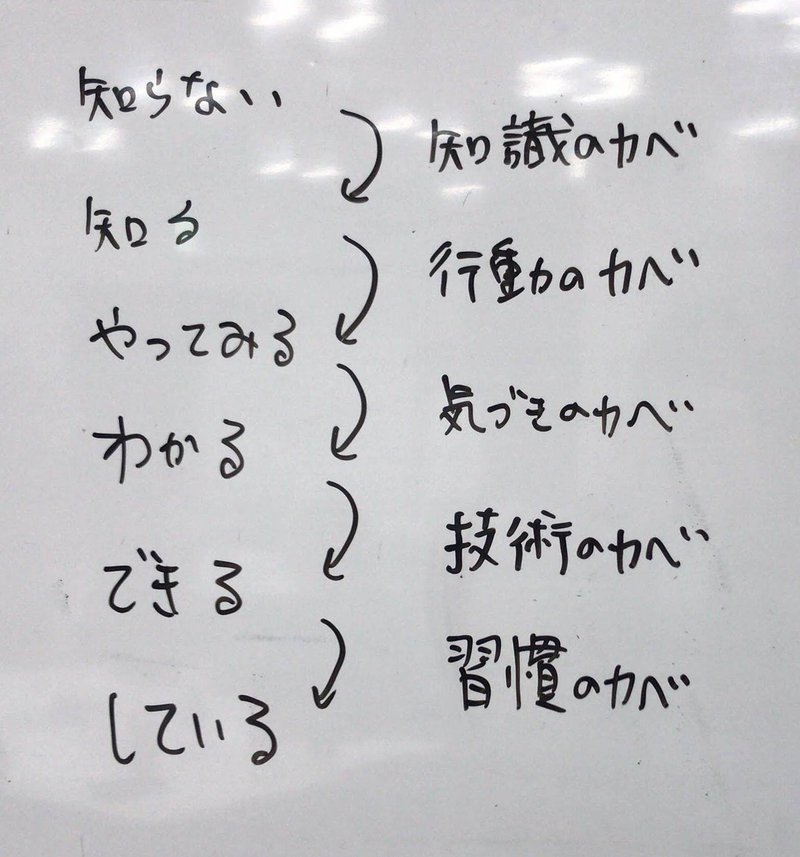 知らない
知識のカベ
知る
行動のカベ
やってみる
気づきのカベ
わかる
技術のカベ
できる
習慣のカベ
している